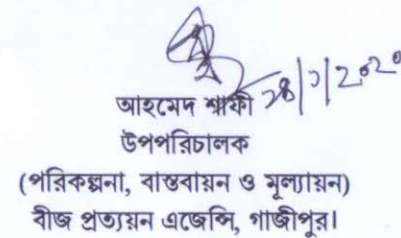 আহমেদ শাফী
উপপরিচালক
(পরিকল্পনা, বাস্তবায়ন ও মূল্যায়ন)
বীজ প্রত্যয়ন এজেন্সি, গাজীপুর।